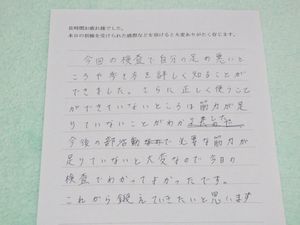 長時間お疲れ様でした。
本日の指極を受けられた感想などを頂けると大変ありがたく存じます。
今回の検査で自分の足の悪いと
ころや歩き方を詳しく知ることが
できました。さらに正しく使うこと
ができていないところは筋力が足
りていないことがわか
今後の部活動などで必要な筋力が
足りていないと大変なので今日の
検査でわかってよかったです。
これから鍛えていきたいと思います